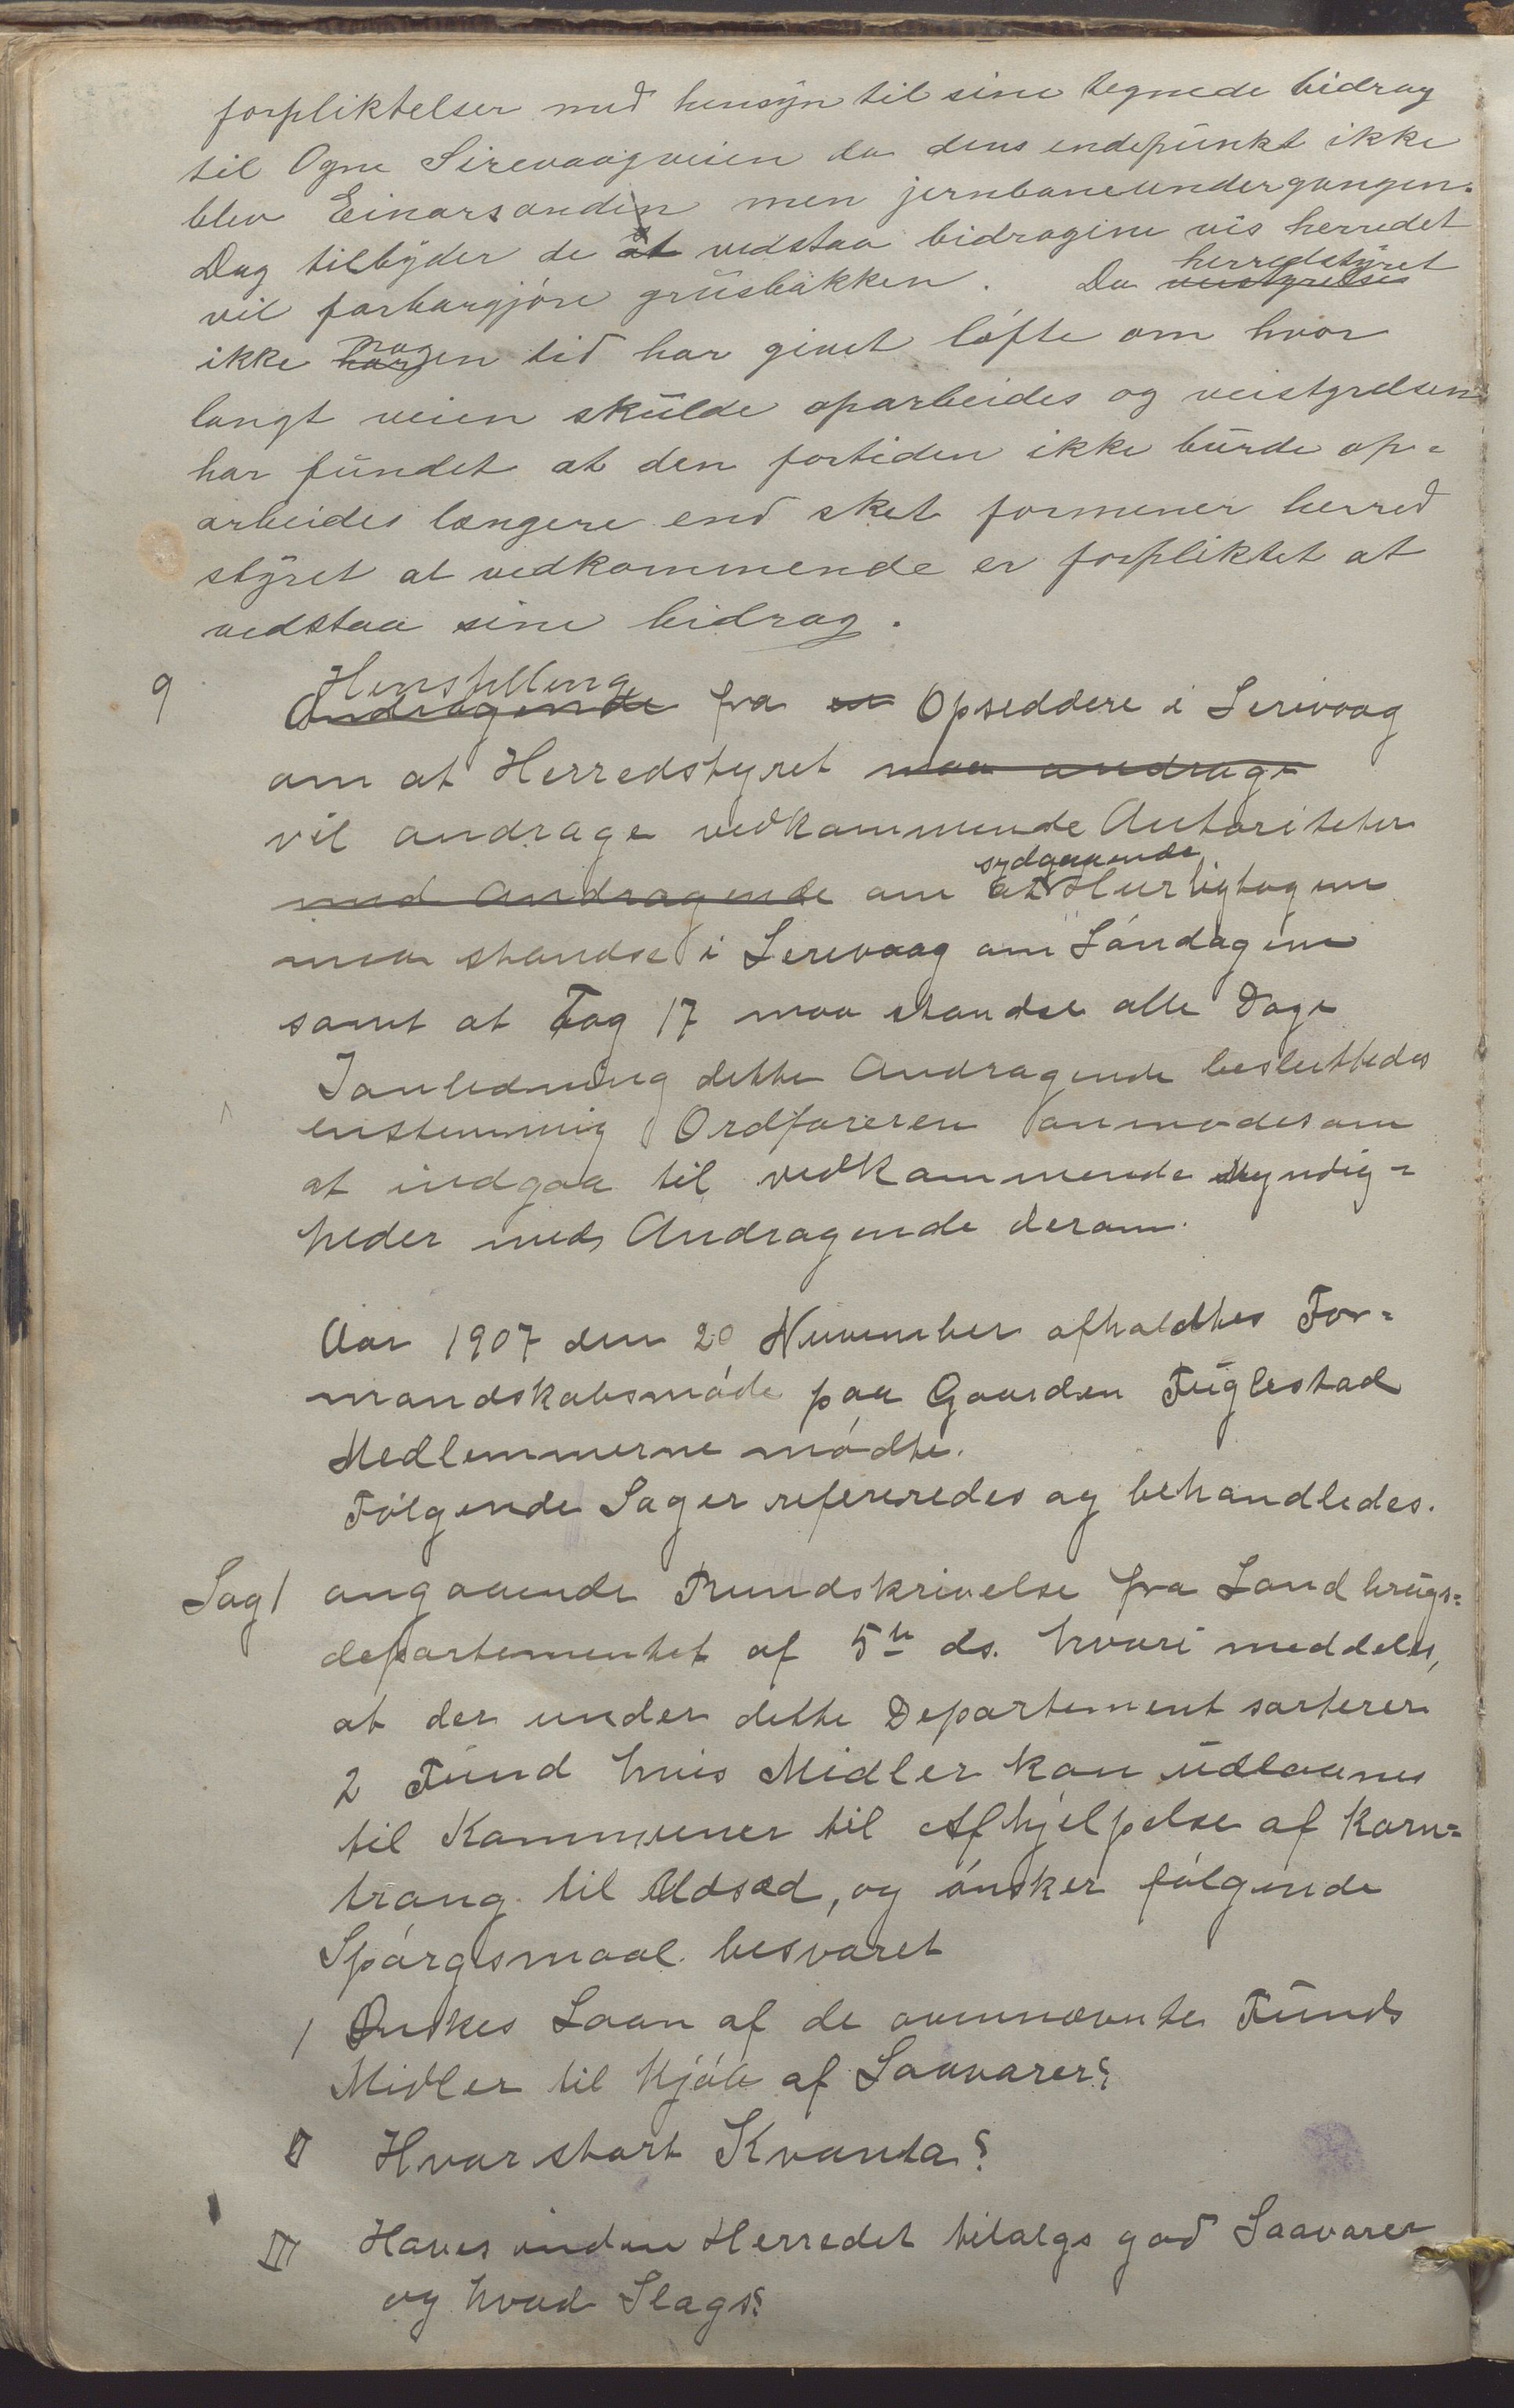 forpliktelser med hensyn til sine tegnede bidrag
til Ogne Sirevaagveien da dens endepunkt ikke
blev Einarsanden men jernbaneundergangen.
Dag tilbyder de at vedstaa bidragene vis herredet
vil farbargjøre grusbakken. Da veistyrelses herredstyret
ikke nogen tid har givet løfte om hvor
langt veien skulde oparbeides og veistyrelsen
har fundet at den fortiden ikke burde op-
arbeides længere end sket formener herred
styret at vedkommende er forpliktet at
vedstaa sine bidrag.
9 Andragende Henstilling fra en Opseddere i Serivaag
om at Herredstyret maa andrage
vil andrage vedkommende Autoriteter
med Andragende om at sydgaaende Hurtigtogene
maa standse i Serevaag om Søndagene
samt at Tog 17 maa standse alle Dage
Ianledning dette Andragende besluttedes
enstemmig Ordføreren anmodes om
at indgaa til vedkommende Myndig-
heder med Andragende derom.
Aar 1907 den 20 November afholdtes For-
mandskabsmøde paa Gaarden Fuglestad
Medlemmerne mødte.
Følgende Sager refereredes og behandledes.
Sag 1 angaaende Rundskrivelse fra Landbrugs-
departementet af 5te ds. hvori meddeles,
at der under dette Departement sorterer
2 Fund hvis Midler kan udlaanes
til Kommuner til Afhjelpelse af Korn-
trang til Udsæd, og ønsker følgende
Spørgsmaal besvaret
I Ønskes Laan af de ovennævnte Funds
Midler til Kjøb af Saavarer?
II Hvor stort Kvanta?
III Haves inden Herredet tilsalgs god Saavarer
og hvad Slags?